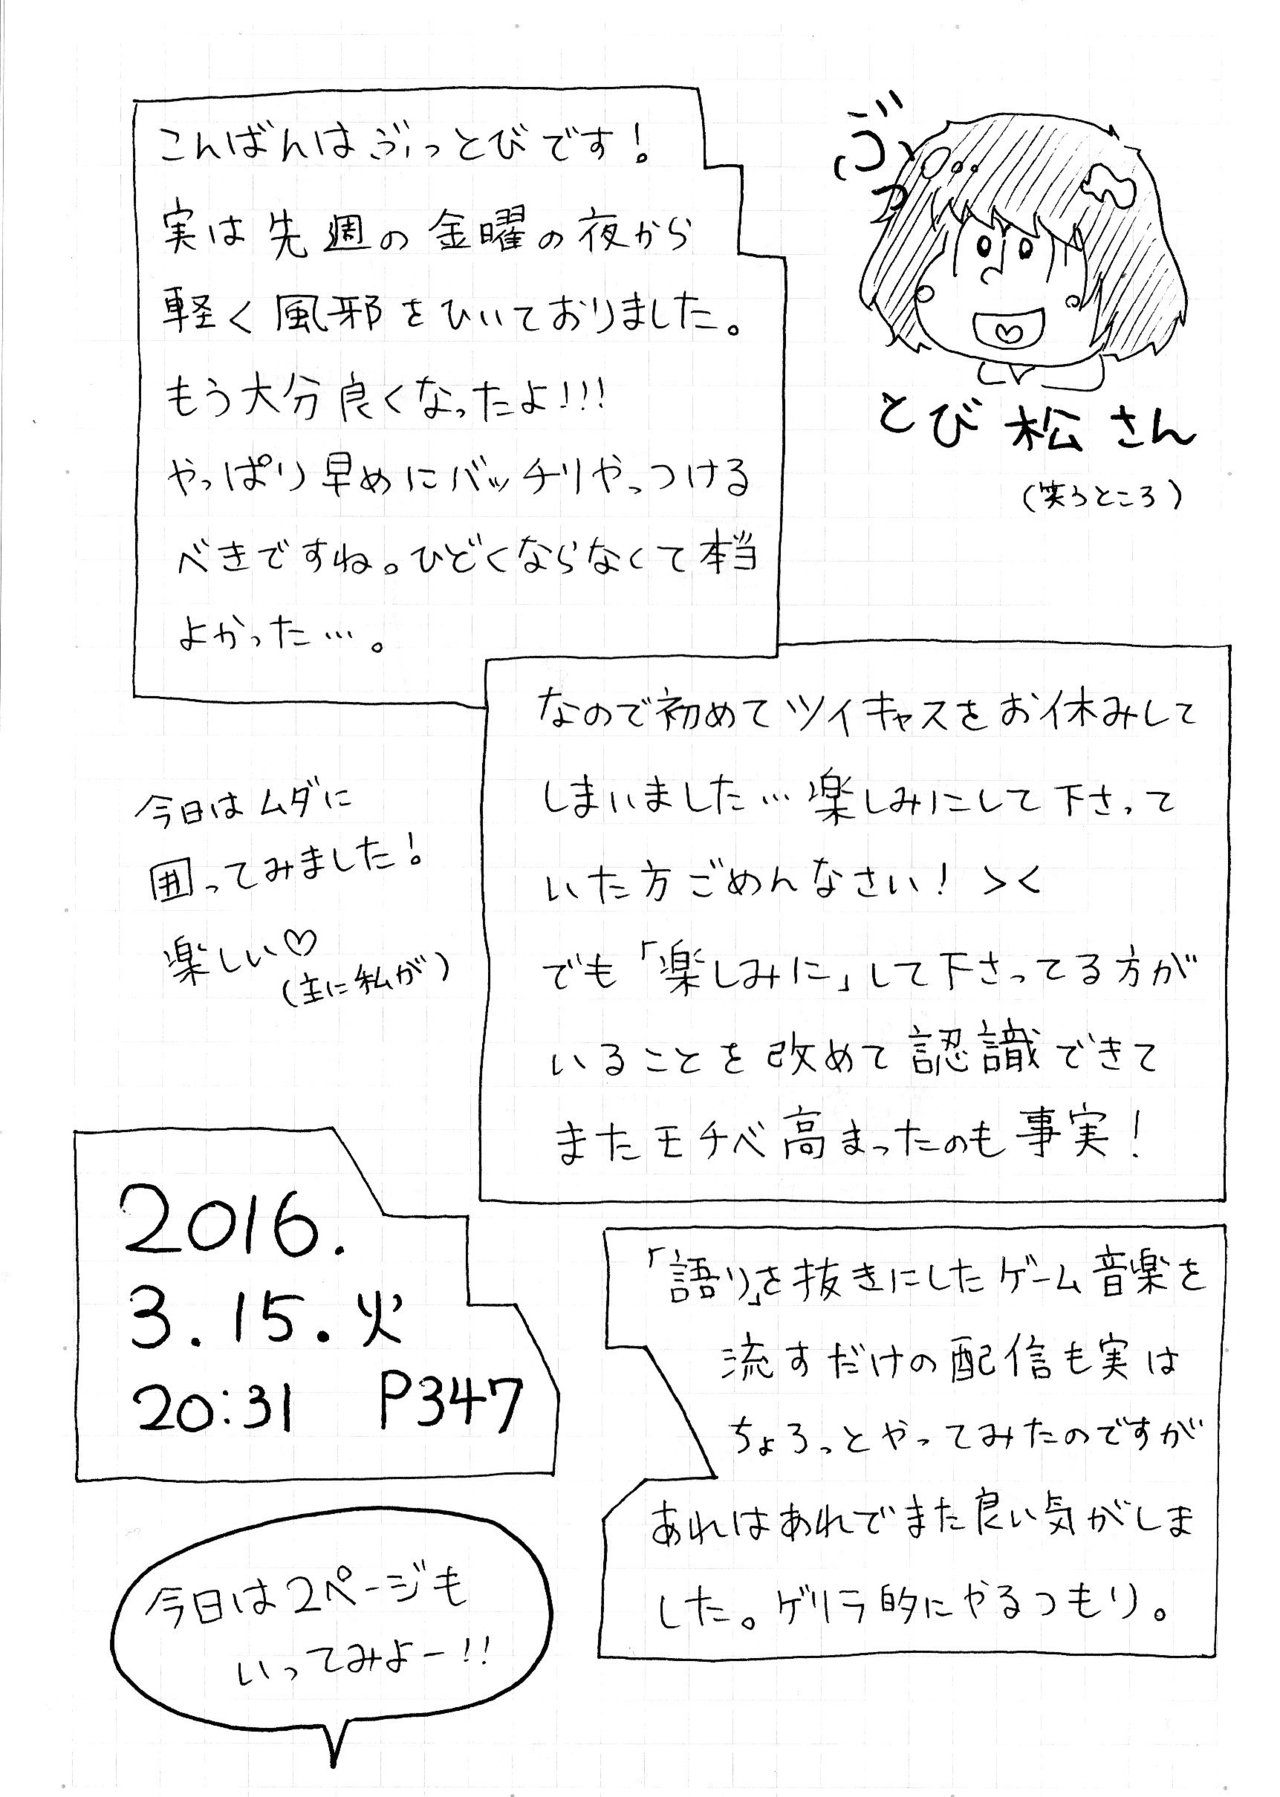 こんばんはぶっとびです！
実は先週の金曜の夜から
軽く風邪をひいておりました。
もう大分良くなったよ!!!
やっぱり早めにバッチリやっつける
べきですね。ひどくならなくて本当
よかった…。
ぶっ
とび松さん
(笑うところ)
なので初めてツイキャスをお休みして
しまいました…楽しみにして下さって
いた方ごめんなさい！＞＜
でも「楽しみに」して下さってる方が
いることを改めて認識できて
またモチベ高まったのも事実！
今日はムダに
囲ってみました！
楽しい♡
(主に私が)
2016.
3.15.火
20:31 P347
「語り」を抜きにしたゲーム音楽を
流すだけの配信も実は
ちょろっとやってみたのですが
あれはあれでまた良い気がしま
した。ゲリラ的にやるつもり。
今日は2ページも
いってみよー!!